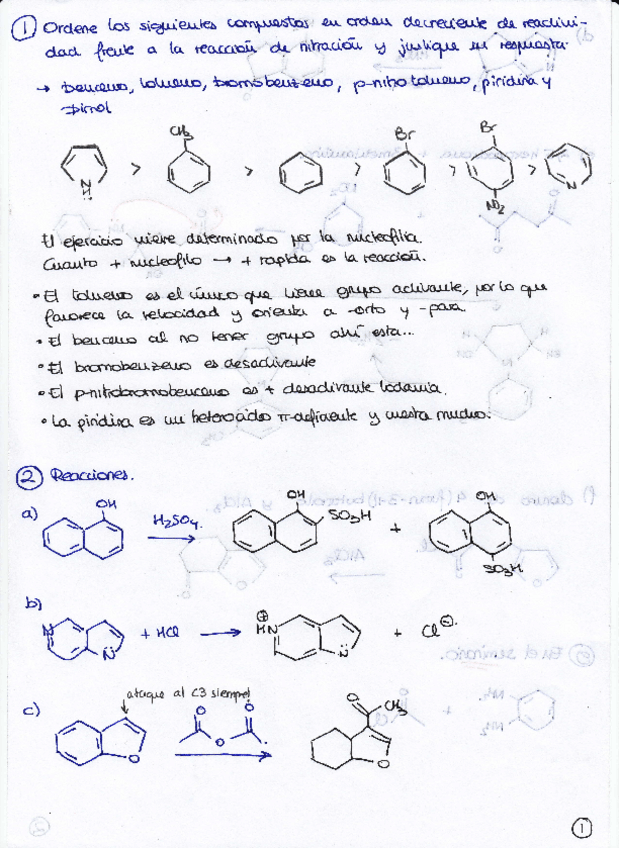 ① Ordene los siguientes compuestos en orden decreciente de reactivi-
dad frente a la reacción de nitración y justique su respuesta.
→ benceno, tolueno, bromobenzeno, p-nitrotolueno, piridina y
pirrol
CH3 Br Br
> > > > >
N H N
NO2
El ejercicio viene determinado por la nucleofilia.
Cuanto + nucleofilo → + rapida es la reacción.
• El tolueno es el único que tiene grupo activante, por lo que
favorece la velocidad y orienta a -orto y -para.
• El benceno al no tener grupo ahí esta...
• El bromobenzeno es desactivante
• El p-nitrobromobenceno es + desactivante todavia.
• La piridina es un heterociclo π-deficiente y cuesta mucho.
② Reacciones.
a) OH H2SO4. OH SO3H + OH
SO3H
b) N N + HCl → ⊕ HN N + Cl⊖.
ataque al C3 siempre
c) O O O O. O CH3
O
①